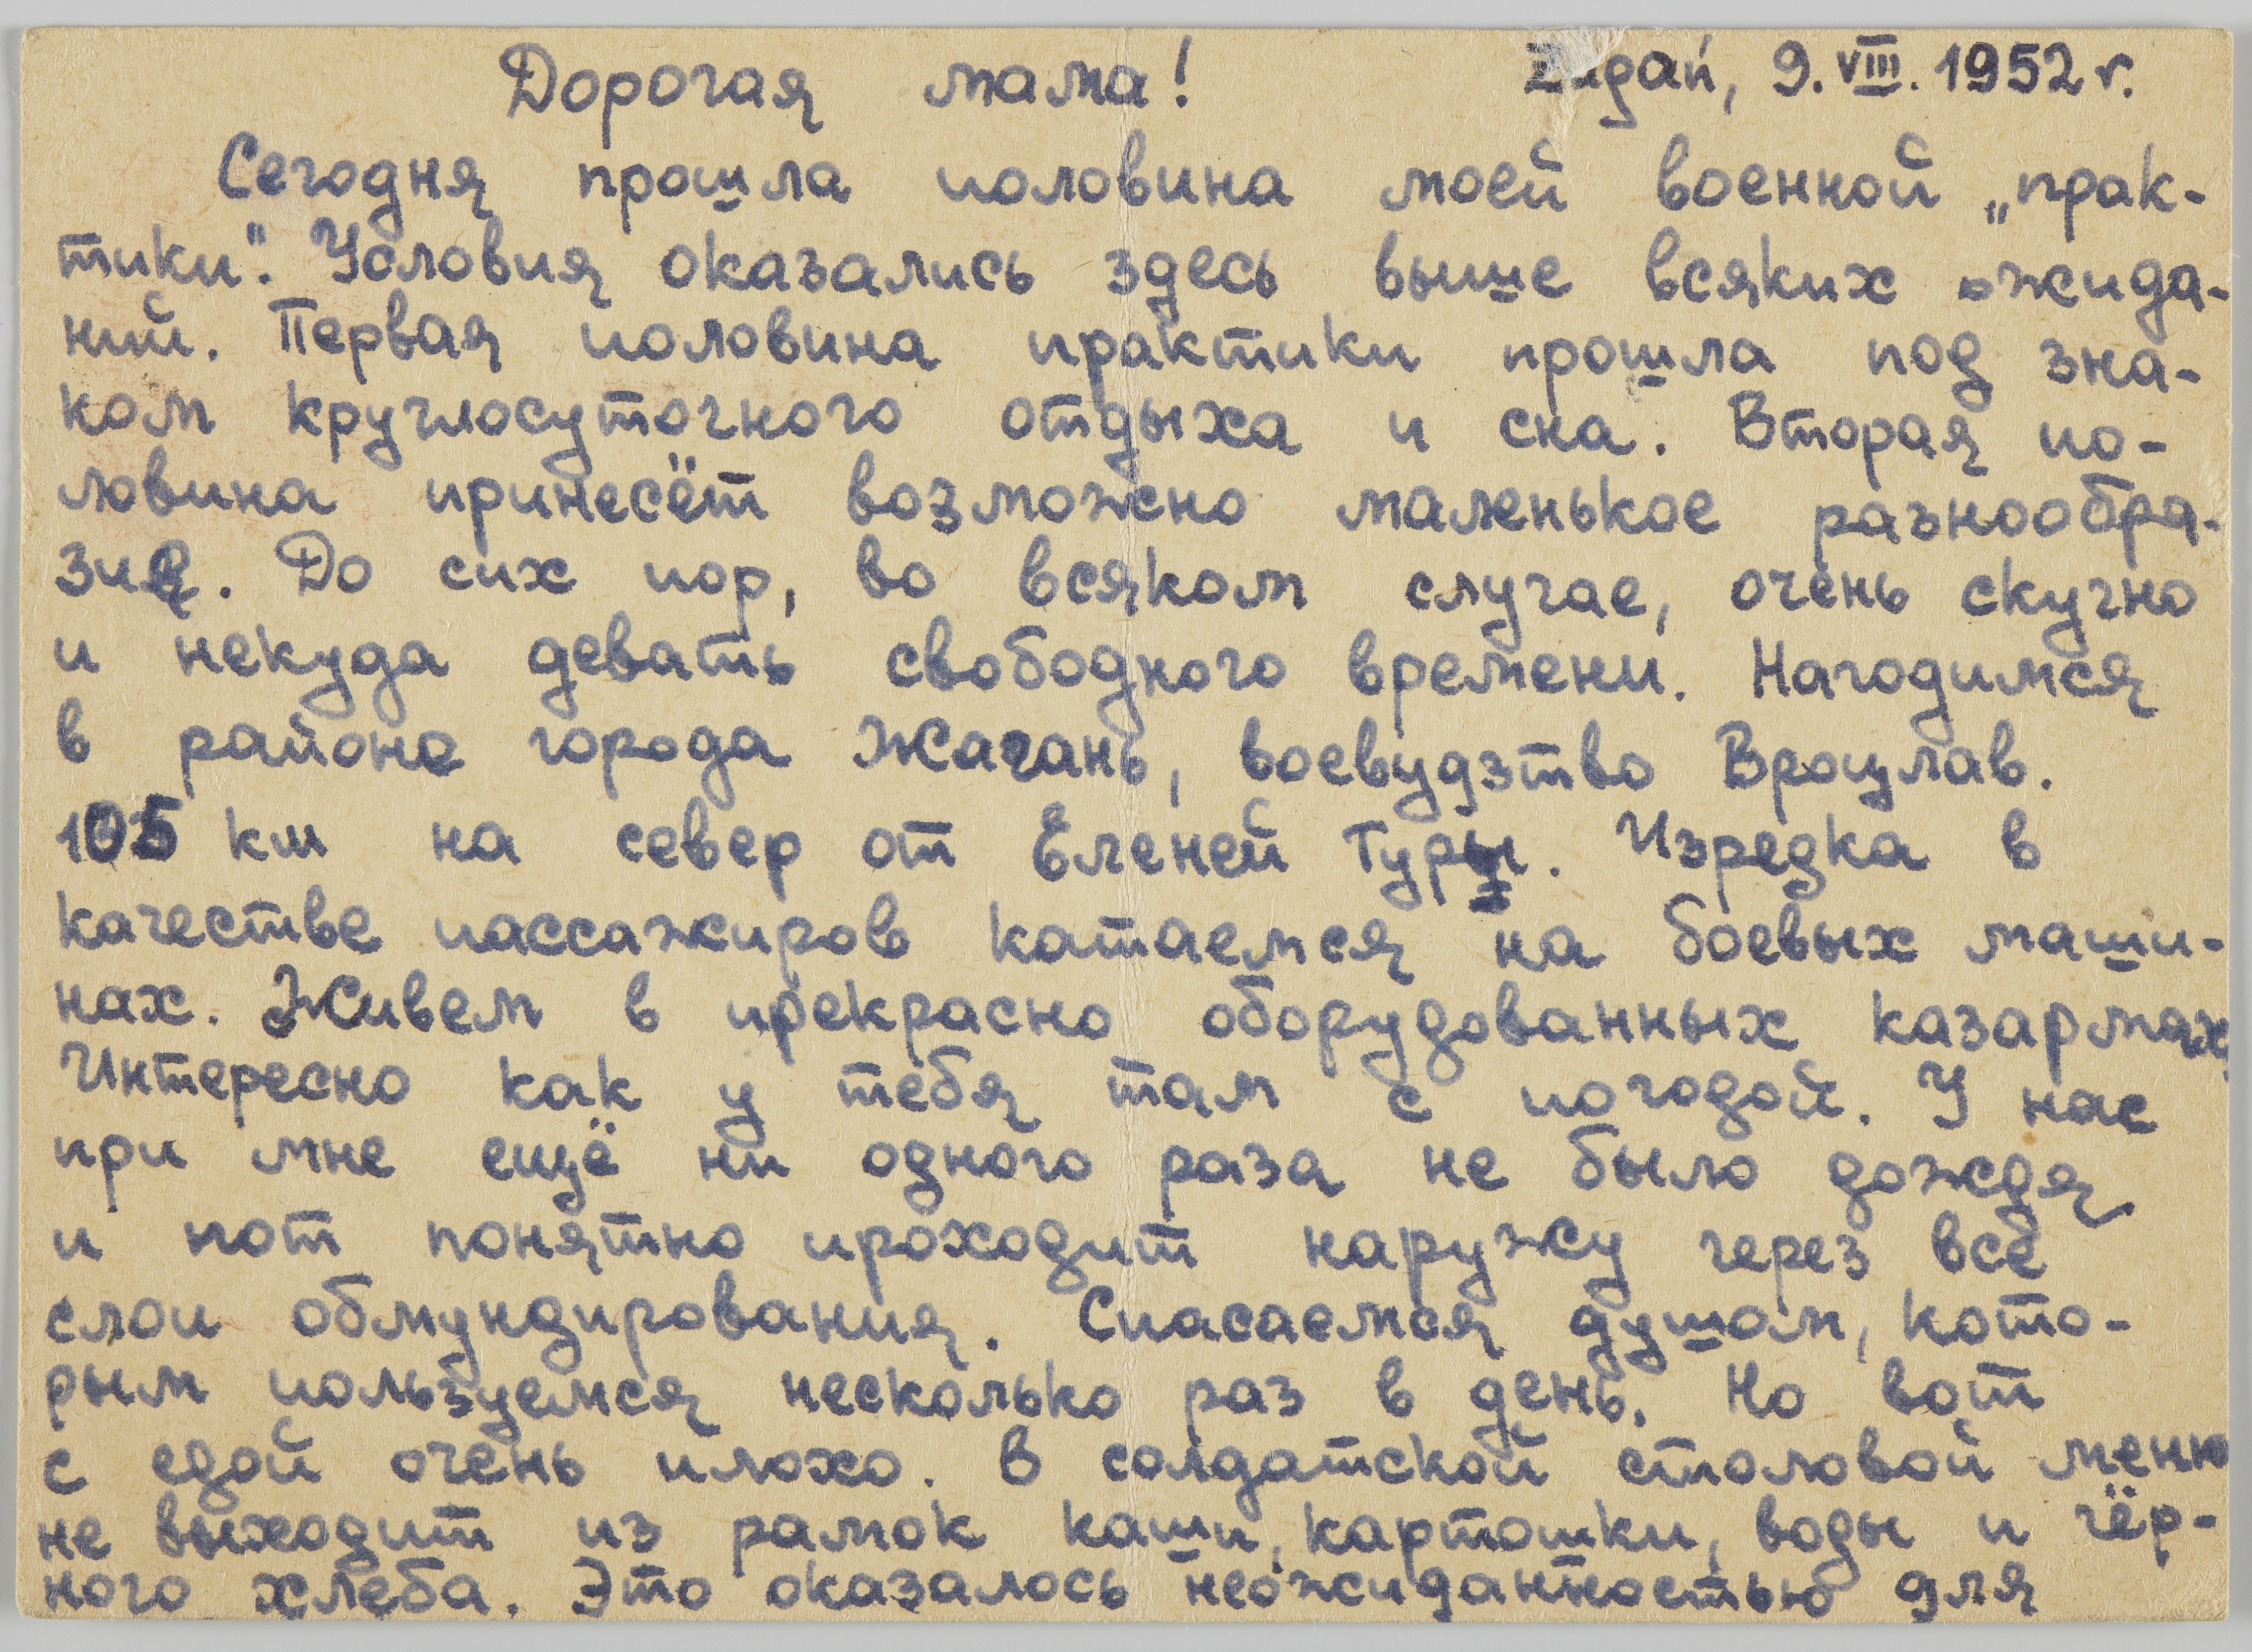 Дорогая мама! Żagań, 9.VIII.1952 r.
Сегодня прошла половина моей военной „прак-
тики". Условия оказались здесь выше всяких ожида-
ний. Первая половина практики прошла под зна-
ком круглосуточного отдыха и сна. Вторая по-
ловина принесёт возможно маленькое разнообра-
зие. До сих пор, во всяком случае, очень скучно
и некуда девать свободного времени. Нагодимся
в районе города Жагань, воевудзтво Вроцлав.
105 км на север от Еленей Гуры. Изредка в
качестве пассажиров катаемся на боевых маши-
нах. Живем в прекрасно оборудованных казармах.
Интересно как у тебя там с погодой. У нас
при мне ещё ни одного раза не было дождя
и пот понятно проходит наружу через все
слои обмундирования. Спасаемся душом, кото-
рым пользуемся несколько раз в день. Но вот
с едой очень плохо. В солдатской столовой меню
не выходит из рамок каши, картошки, воды и чёр-
ного хлеба. Это оказалось неожиданностью для